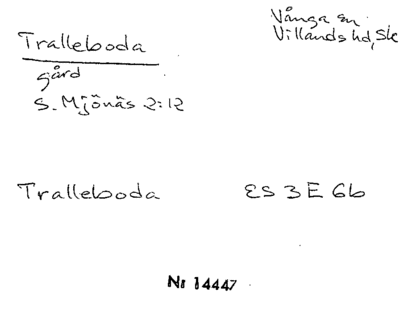 Vånga sn
Villands hd, Sk
Tralleboda
gård
S. Mjönäs 2:12
Tralleboda ES 3 E 6b
Nr 14447